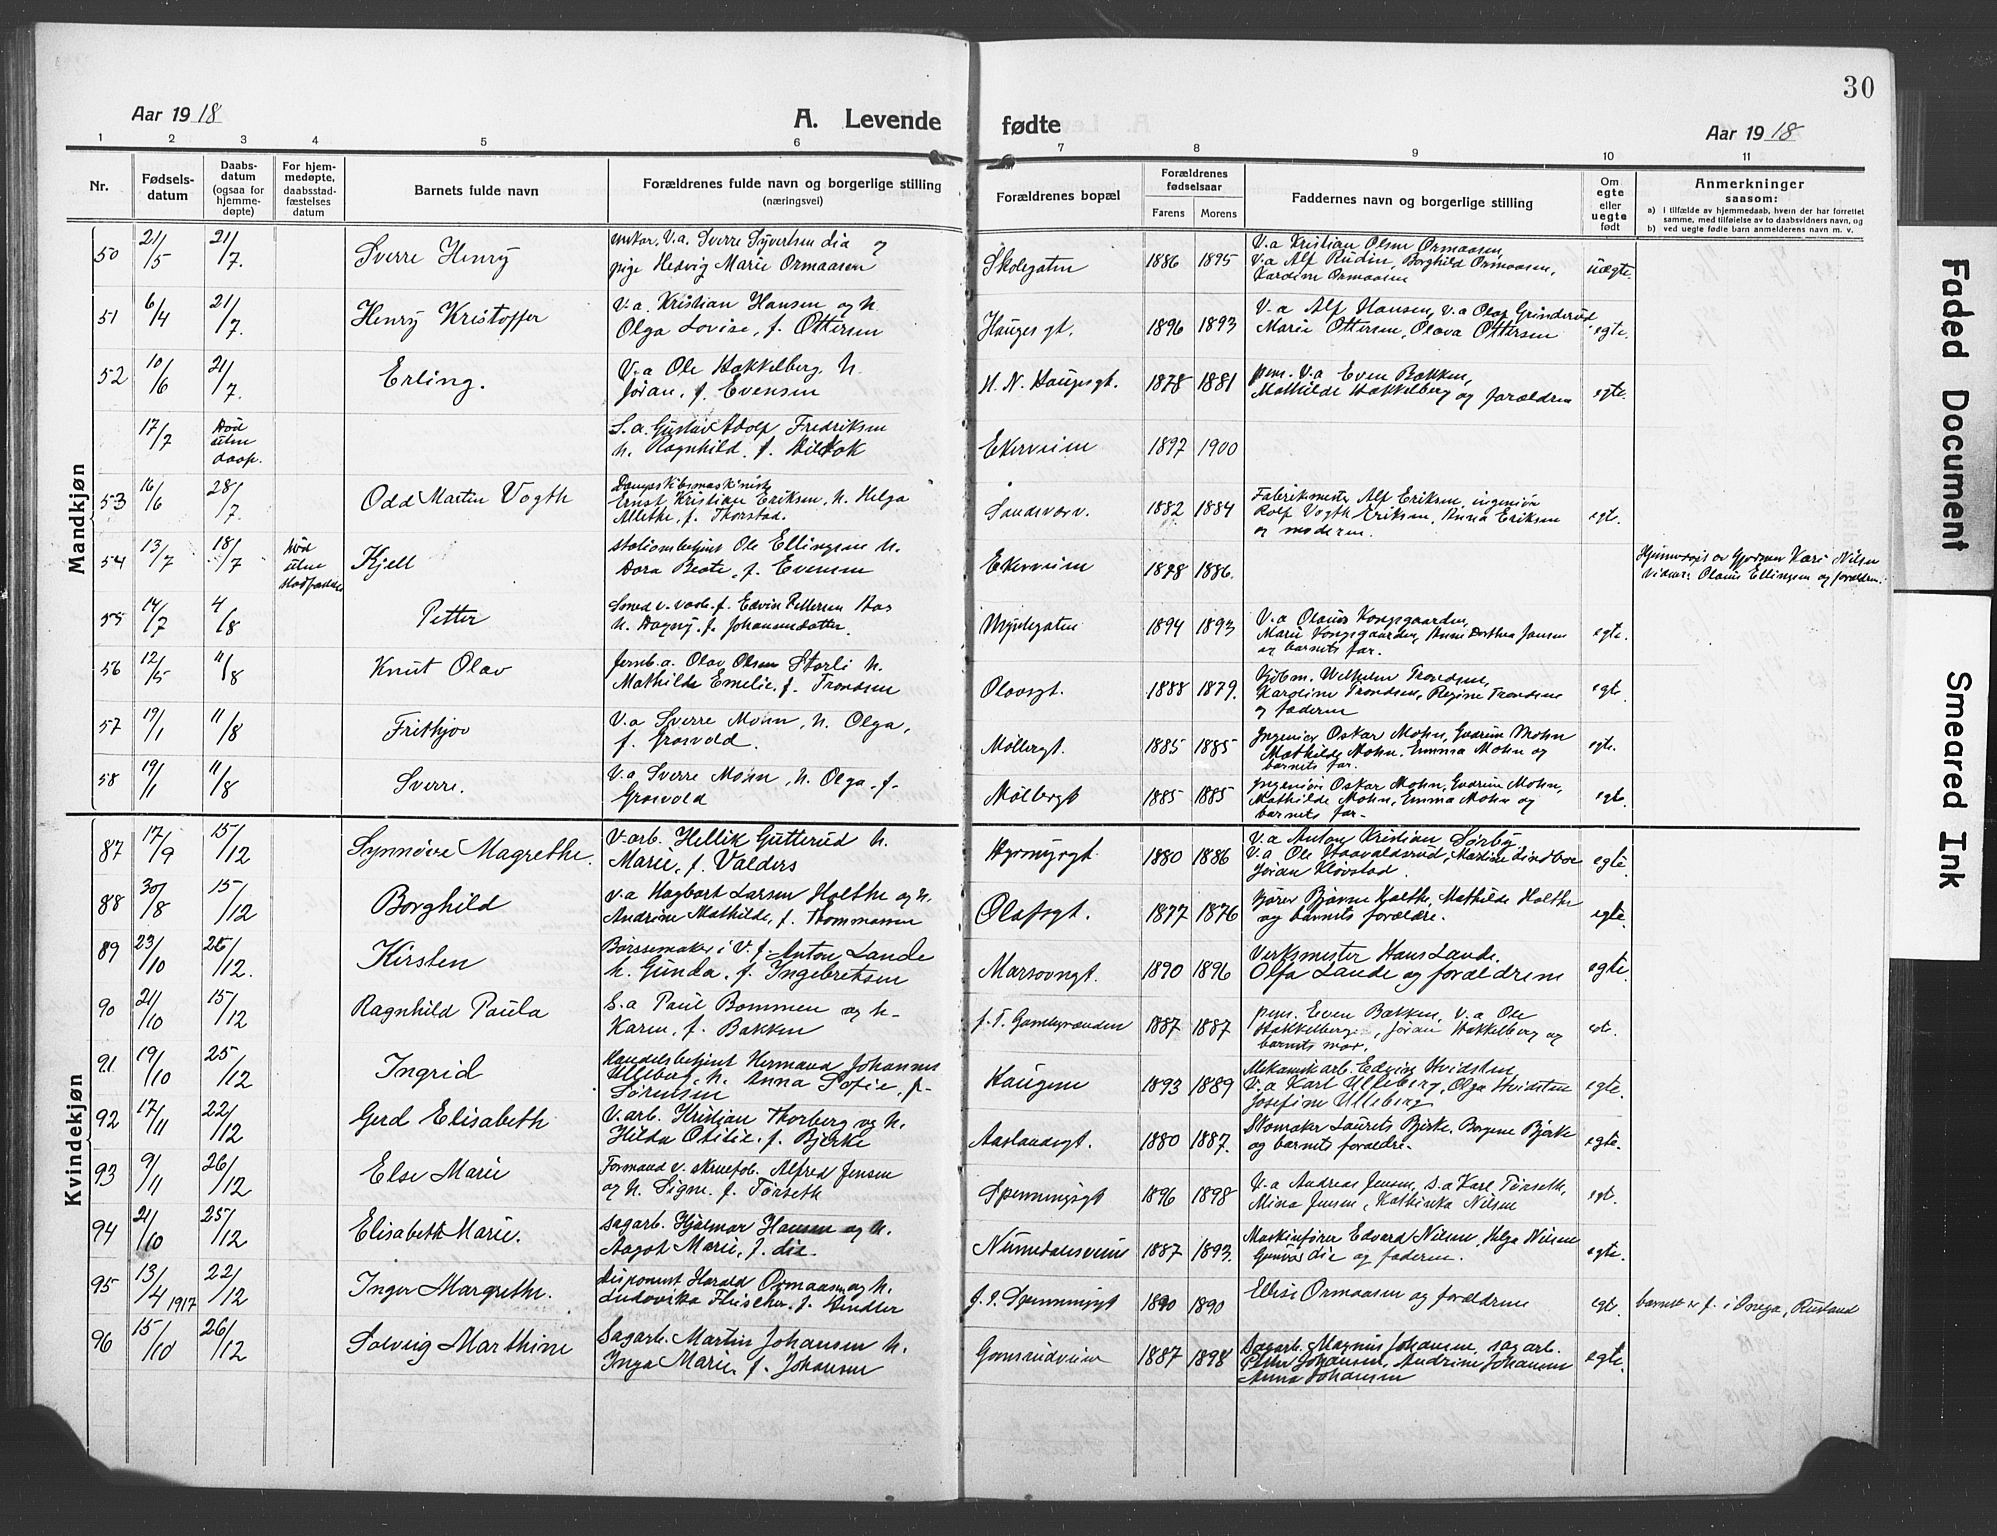 30
Aar 1918
A. Levende
fødte
Aar 1918
1 2 3 4 5 6 7 8 9 10 11
Nr.
Fødsels-
datum
Daabs-
datum
(ogsaa for
hjemme-
døpte)
For hjem-
medøpte,
daabsstad-
fæstelses
datum
Barnets fulde navn
Forældrenes fulde navn og borgerlige stilling
(næringsvei)
Forældrenes bopæl
Forældrenes
fødselsaar
Farens Morens
Faddernes navn og borgerlige stilling
Om
egte
eller
uegte
født
Anmerkninger
saasom:
a) i tilfælde av hjemmedaab, hvem der har forrettet
samme, med tilføielse av to daabsvidners navn, og
b) ved uegte fødte barn anmelderens navn m. v.
Mandkjøn
50 21/5 21/7 Sverre Henry
V.a. Sverre Syvertsen
pige Hedvig Marie Ormaasen
Skolegaten 1886 1895
V.a Kristian Olsen Ormaasen,
V.a Alf Rudin, Borghild Ormaasen,
Ormaasen
uegte
51 6/4 21/7 Henry Kristoffer
V.a. Kristian Hansen og h.
Olga Lovise, f. Ottersen
Hauges gt. 1896 1893
V.a Alf Hansen, V.a Olaf Grinderud
Marie Ottersen, Olava Ottersen
egte.
52 10/6 21/7 Erling.
V.a Ole Hakkelberg, h.
Jøran, f. Evensen
H. N. Haugesgt. 1878 1881
pens. V.a Even Bakken,
Mathilde Hakkelberg og forældrene
egte.
17/7 Død
uten
daap.
S.a. Gustav Adolf Fredriksen
h. Ragnhild, f.
Ekerveien 1897 1900
53 16/6 28/7 Odd Martin Vogth
Dampskibsmaskinist
Ernst Kristian Eriksen, h. Helga
Alethe, f. Thorstad.
Sandsværv. 1882 1884
Fabrikmester Alf Eriksen, ingeniør
Rolf Vogth Eriksen, Anna Eriksen
og moderen.
egte.
54 13/7 18/7 Død
uten
Stadfæstelse
Kjell
Stationsbetjent Ole Ellingsen h.
Dora Beate, f. Evensen
Ekerveien 1878 1886.
Hjemmedøpt av Gjordmor Kari Nilsen
Vidner: Olaus Ellingsen og forældren.
55 14/7 4/8 Petter
Smed v. vaab.f. Edvin Pettersen
h. Dagny, f. Johannesdatter.
Myntegaten 1894 1893
V.a Olaus Kongsgaarden,
Marie Kongsgaarden, Anne Dorthea Jansen
og barnets far.
egte.
56 12/5 11/8 Knut Olav
Jernb.a. Olav Olsen Storli h.
Mathilde Emelie, f. Trondsen
Olavsgt. 1888 1879.
Kjøbm. Wilhelm Trondsen,
Karoline Trondsen, Regine Trondsen
og faderen
egte.
57 19/1 11/8 Frithjov
V.a Sverre Mohn, h. Olga,
f. Grosvold.
Møllergt. 1885 1885
Ingeniør Oskar Mohn, Gudrun Mohn
Mathilde Mohn, Emma Mohn og
barnets far.
egte.
58 19/1 11/8 Sverre.
V.a Sverre Mohn, h. Olga, f.
Grosvold
Møllergt 1885 1885
Ingeniør Oskar Mohn, Gudrun Mohn,
Mathilde Mohn, Emma Mohn og
barnets far.
egte.
Kvindekjøn
87 17/9 15/12 Synnøve Magrethe.
V.arb. Hellik Gutterud h.
Marie, f. Valders
Hyrmyrgt. 1880 1886
V.a Anton Kristian Sørby,
V.a Ole Haavaldsrud, Martine Lindboe
Jøran Kløvstad.
egte
88 30/8 15/12 Borghild
V.a Hagbart Larsen Holthe og h.
Andrine Mathilde, f. Thommasen
Olafsgt. 1877 1876
Bjarne Holthe, Mathilde Holthe
og barnets forældre.
egte.
89 23/10 25/12. Kirsten
Børssemaker i V.f. Anton Lande
h. Gunda, f. Ingebretsen
Marsovngt. 1890 1896
Verksmester Hans Lande,
Olga Lande og forældrene
egte.
90 21/10 15/12 Ragnhild Paula
S.a Paul Bommen og h.
Karen, f. Bakken
f. T. Gamlegrænden 1887 1887
pens. Even Bakken, V.a Ole
Hakkelberg, Jøran Hakkelberg og
barnets mor.
egte.
91 19/10 25/12 Ingrid
Handelsbetjent Hermand Johannes
Ulleberg, h. Anna Sofie, f.
Sørensen
Haugen 1893 1889
Mekanisk arb. Edvin Hvidsten,
V.a Karl Ulleberg, Olga Hvidsten
Josefine Ulleberg
egte.
92 17/11 22/12 Gerd Elisabeth
V.arb. Kristian Thorberg og h.
Hilda Otilie, f. Bjerke
Aaslandsgt. 1880 1887.
Skomaker Laurets Bjerke, Borgene Bjerke
og barnets forældre.
egte.
93 9/11 26/12 Else Marie
Formand v. skruefab. Alfred Jensen
og h. Signe, f. Tørseth
Spenningsgt 1896 1898
V.a Andreas Jensen, S.a Karl Tørseth,
Mina Jensen, Kathinka Nilsen
egt.
94 21/10 25/12 Elisabeth Marie.
Sagarb. Hjalmar Hansen og h.
Aagot Marie, f. die.
Numedalsveien 1887 1893.
Maskinfører Edvard Nilsen, Helga Nilsen
Gunvor die og faderen.
egte.
95 13/4 1917 22/12 Inger Margrethe.
Disponent Harald Ormaasen og h.
Ludovika Fleischer, f. Kindler
J. I. Spenningsgt 1890 1890
Ellise Ormaasen og forældrene
egt.
barnet er f. i Onega, Rusland
96 15/10 26/12 Solveig Marthine
Sagarb. Martin Johansen h.
Inga Marie, f. Johansen
Gomsrudveien 1887 1898
Sagarb. Magnus Johansen, sagarb.
Peder Johansen, Andrine Johansen
Anna Johansen
egte.
Faded Document
Smeared Ink